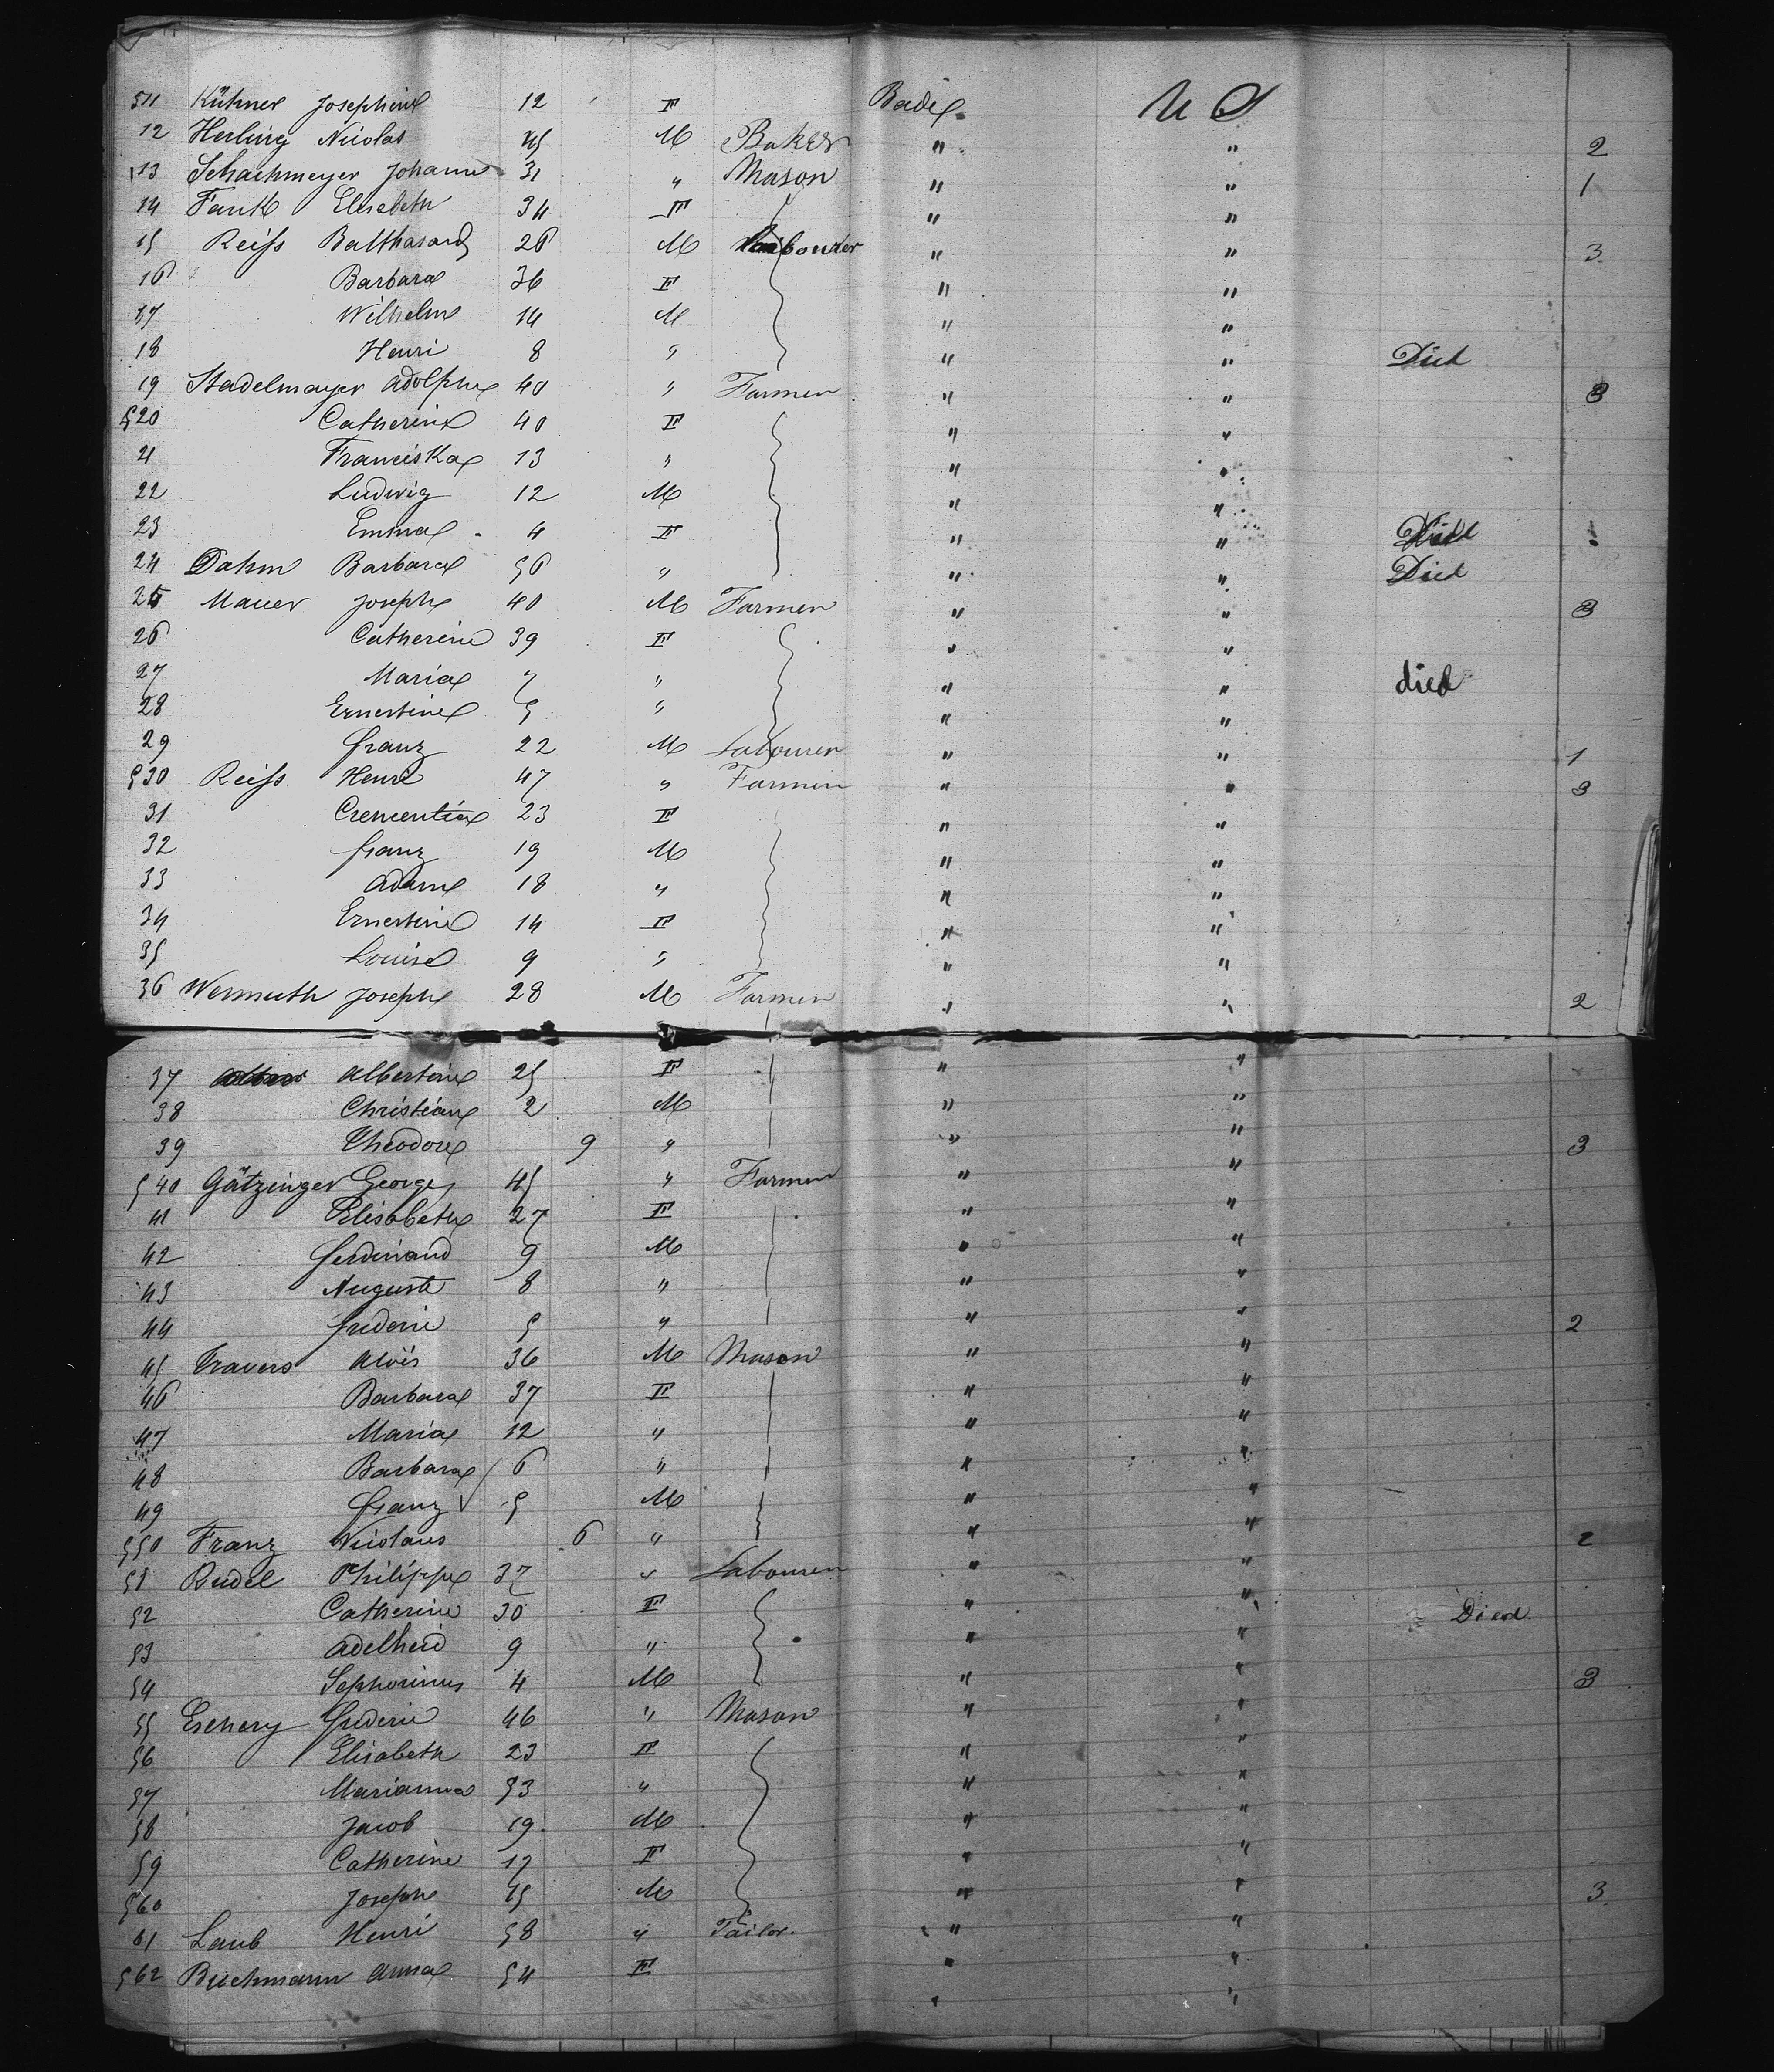 511 Kühner Josephine 12 F Bade U S
12 Herling Nicolas 45 M Baker " " 2
13 Schachmeyer Johann 31 " Mason " " 1
14 Fautk Elisabeth 34 F " "
15 Reifs Balthasard 26 M Labourer " " 3
16 Barbara 36 F " "
17 Wilhelm 14 M " "
18 Henri 8 " " " Died
19 Stadelmayer Adolphe 40 " Farmer " " 3
520 Catherine 40 F " "
21 Franciska 13 " " "
22 Ludwig 12 M " "
23 Emma 4 F " " Died
24 Dahm Barbara 56 " " " Died
25 Mauer Joseph 40 M Farmer " " 3
26 Catherine 39 F " "
27 Maria 7 " " " died
28 Ernestine 5 " " "
29 Franz 22 M Labourer " " 1
530 Reifs Henri 47 " Farmer " " 3
31 Crementia 23 F " "
32 Franz 19 M " "
33 Adam 18 " " "
34 Ernestine 14 F " "
35 Louise 9 " " "
36 Wermuth Joseph 28 M Farmer " " 2
37 Albertine 25 F " "
38 Christian 2 M " "
39 Theodore 9 " " " 3
540 Gätzinger George 45 " Farmer " "
41 Elisabeth 27 F " "
42 Ferdinand 9 M " "
43 Auguste 8 " " "
44 Frederic 5 " " " 2
45 Travers Alois 36 M Mason " "
46 Barbara 37 F " "
47 Maria 12 " " "
48 Barbara 6 " " "
49 Franz 5 M " "
550 Franz Nicolaus 6 " " " 2
51 Rudel Philippe 37 " Labourer " "
52 Catherine 30 F " " Died
53 Adelheid 9 " " "
54 Sephorinus 4 M " " 3
55 Eschery Frederic 46 " Mason " "
56 Elisabeth 23 F " "
57 Marianna 53 " " "
58 Jacob 19 M " "
59 Catherine 17 F " "
560 Joseph 15 M " " 3
61 Laub Henri 58 " Tailor. " "
562 Buchmann Anna 54 F " "
" "